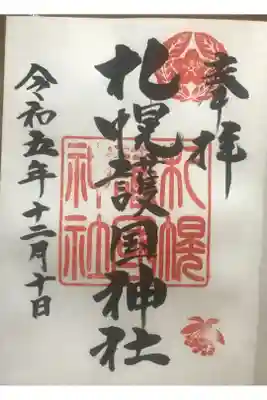 奉拝
札幌護国神社
令和五年十二月十日
札幌
護国
神社